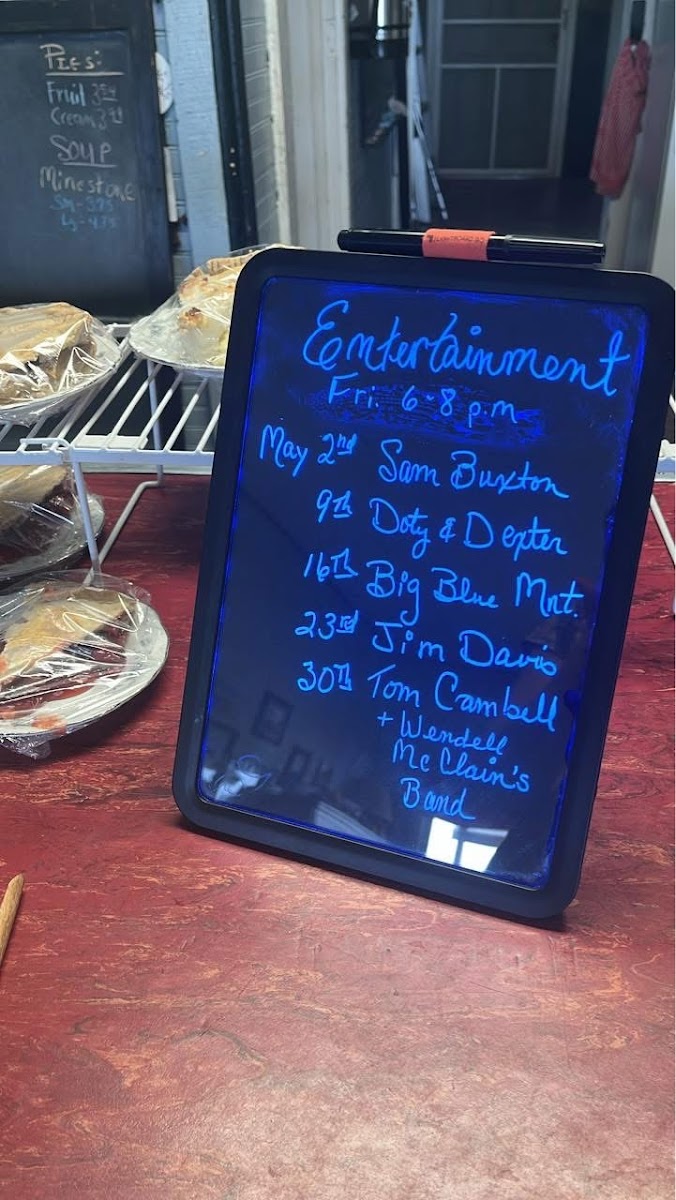 Pies:
Fruit
Cream
SOUP
Minestone
Sm - 3.75
Lg - 4.75
Entertainment
Fri. 6-8 p.m
May 2nd Sam Buxton
9th Doty & Dexter
16th Big Blue Mnt.
23rd Jim Davis
30th Tom Cambell
+ Wendell
McClain's
Band